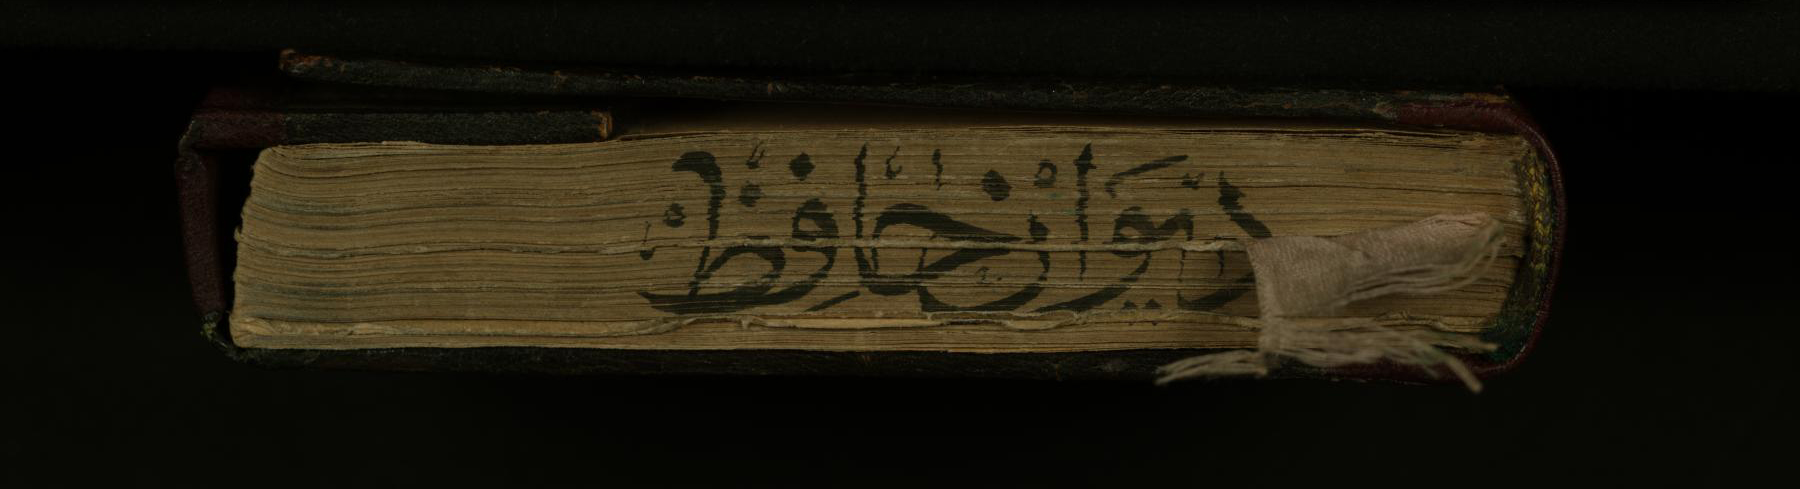 ديوان حافظ